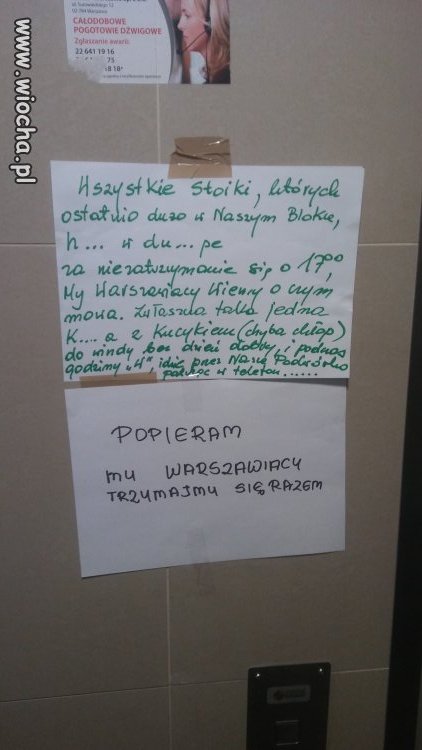 www.wiocha.pl
CAŁODOBOWE
POGOTOWIE DŹWIGOWE
Zgłaszanie awarii:
22 641 19 16
75
18 18
Wszystkie Słoiki, których
ostatnio dużo w Naszym Bloku,
h... w du...pe
za niezatrzymanie się o 17⁰⁰,
My Warszawiacy Wiemy o czym
mowa. Zwłaszcza taka jedna
K....a z Kucykiem (chyba chłop)
do windy bez dzień dobry, i podczas
godziny "W", idzie przez Nasze Podwórko
patrząc w telefon......
POPIERAM
MY WARSZAWIACY
TRZYMAJMY SIĘ RAZEM